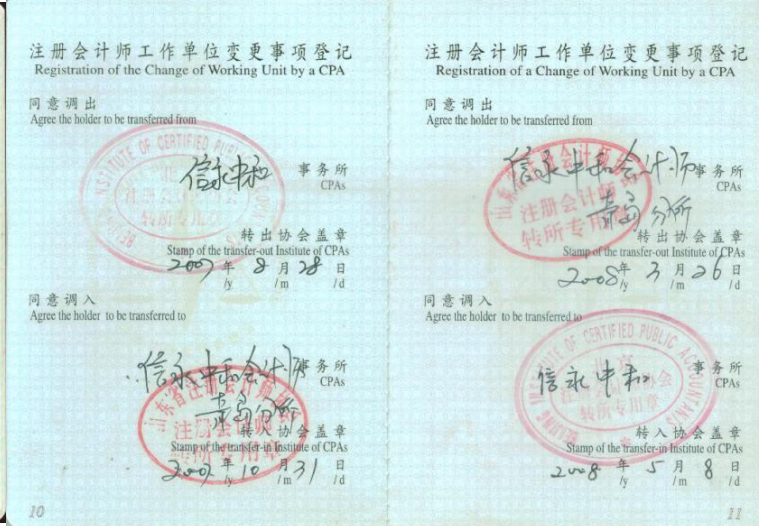 注册会计师工作单位变更事项登记
Registration of the Change of Working Unit by a CPA
同意调出
Agree the holder to be transferred from
信永中和 事务所
CPAs
转出协会盖章
Stamp of the transfer-out Institute of CPAs
2007年 8月28日
/y /m /d
同意调入
Agree the holder to be transferred to
信永中和会计师事务所
CPAs
青岛分所
转入协会盖章
Stamp of the transfer-in Institute of CPAs
2007年 10月31日
/y /m /d
山东省注册会计师协会
注册会计师
转所专用章
10
注册会计师工作单位变更事项登记
Registration of a Change of Working Unit by a CPA
同意调出
Agree the holder to be transferred from
信永中和会计师事务所
CPAs
青岛分所
转出协会盖章
Stamp of the transfer-out Institute of CPAs
2008年 3月26日
/y /m /d
注册会计师
转所专用章
同意调入
Agree the holder to be transferred to
信永中和 事务所
CPAs
BEIJING INSTITUTE OF CERTIFIED PUBLIC ACCOUNTANTS
转所专用章
转入协会盖章
Stamp of the transfer-in Institute of CPAs
2008年 5月8日
/y /m /d
11